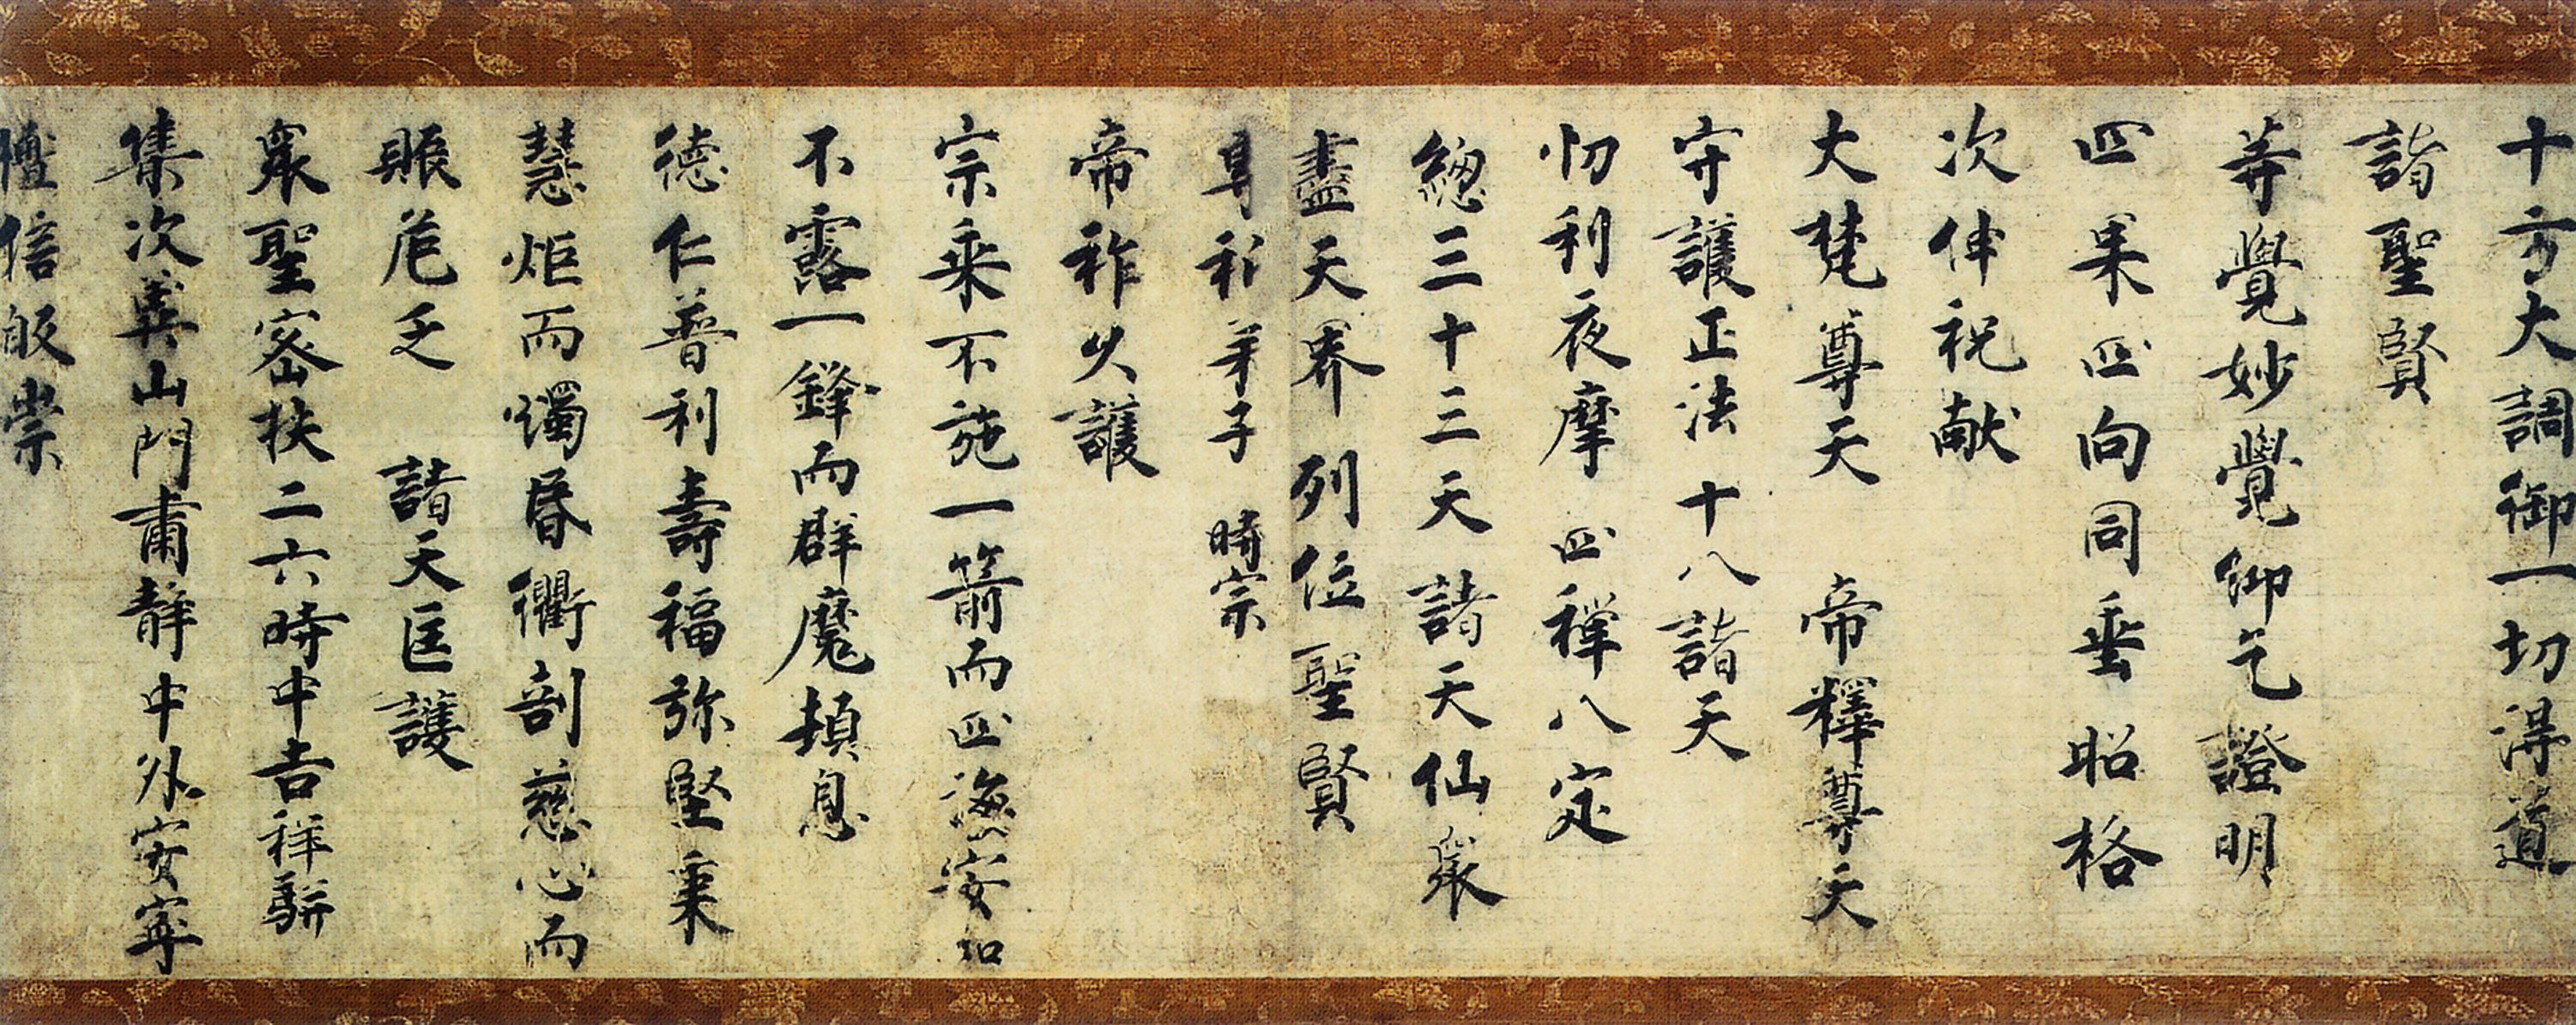 十方大調御一切得道
諸聖賢
等覺妙覺仰乞證明
四果四向同垂昭格
次伸祝献
大梵尊天 帝釋尊天
守護正法十八諸天
忉利夜摩四禪八定
總三十三天諸天仙衆
盡天界列位聖賢
弟子 時宗
帝祚久護
宗乘不施一箭而四海安和
不露一鋒而群魔頓息
德仁普利壽福弥堅秉
慧炬而燭昏衢剖慈心而
賑危乏 諸天匡護
衆聖密扶二六時中吉祥駢
集次冀山門肅静中外安寧
檀信皈崇